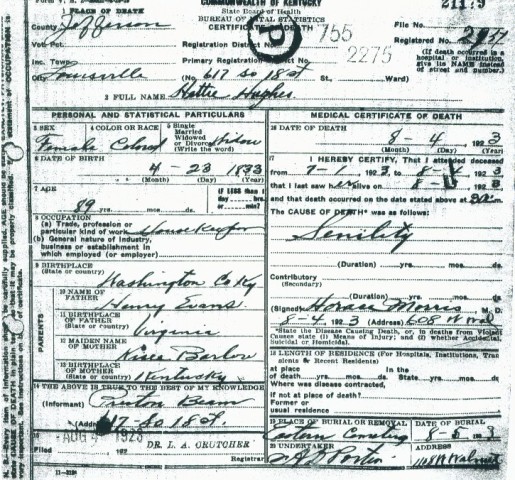 1 PLACE OF DEATH
COMMONWEALTH OF KENTUCKY
State Board of Health
BUREAU OF VITAL STATISTICS
CERTIFICATE OF DEATH
County Jefferson
File No.
Vot. Pct.
Registration District No. 755
Registered No.
Inc. Town
Primary Registration District No. 2275
(If death occurred in a hospital or institution, give its NAME instead of street and number.)
City Louisville (No. 617 So 18 St St., Ward)
2 FULL NAME Hattie Hughes
PERSONAL AND STATISTICAL PARTICULARS
3 SEX Female
4 COLOR OR RACE Colored
5 Single Married Widowed or Divorced (Write the word) Widow
6 DATE OF BIRTH 4 23 1833
(Month) (Day) (Year)
7 AGE 89 yrs. mos. ds.
IF LESS than 1 day hrs. or min?
8 OCCUPATION
(a) Trade, profession or particular kind of work Housekeeper
(b) General nature of industry, business or establishment in which employed (or employer)
9 BIRTHPLACE
(State or country) Washington Co Ky
PARENTS
10 NAME OF FATHER Henry Evans
11 BIRTHPLACE OF FATHER
(State or country) Virginia
12 MAIDEN NAME OF MOTHER Barlow
13 BIRTHPLACE OF MOTHER
(State or country) Kentucky
14 THE ABOVE IS TRUE TO THE BEST OF MY KNOWLEDGE
(Informant) Beam
(Address) 617 So 18 St.
15
Filed AUG 4 1923 192
DR. L. A. CRUTCHER
Registrar
11-3184
MEDICAL CERTIFICATE OF DEATH
16 DATE OF DEATH
8 - 4 1923
(Month) (Day) (Year)
17 I HEREBY CERTIFY, That I attended deceased
from 7-1 1923, to 8- 1923
that I last saw her alive on 8- 1923
and that death occurred on the date stated above at
The CAUSE OF DEATH* was as follows:
Senility
(Duration) yrs. mos. ds.
Contributory
(Secondary)
(Duration) yrs. mos. ds.
(Signed) Horace Morris M. D.
8-4, 1923 (Address) 608 W
*State the Disease Causing Death, or, in deaths from Violent Causes state (1) Means of Injury; and (2) whether Accidental, Suicidal or Homicidal.
18 LENGTH OF RESIDENCE (For Hospitals, Institutions, Transients & Recent Residents)
At place of death yrs. mos. ds. In the State yrs. mos. ds.
Where was disease contracted,
if not at place of death?
Former or usual residence
19 PLACE OF BURIAL OR REMOVAL Eastern Cemetery
DATE OF BURIAL 8-5 1923
20 UNDERTAKER Porter
ADDRESS 1168 W Walnut